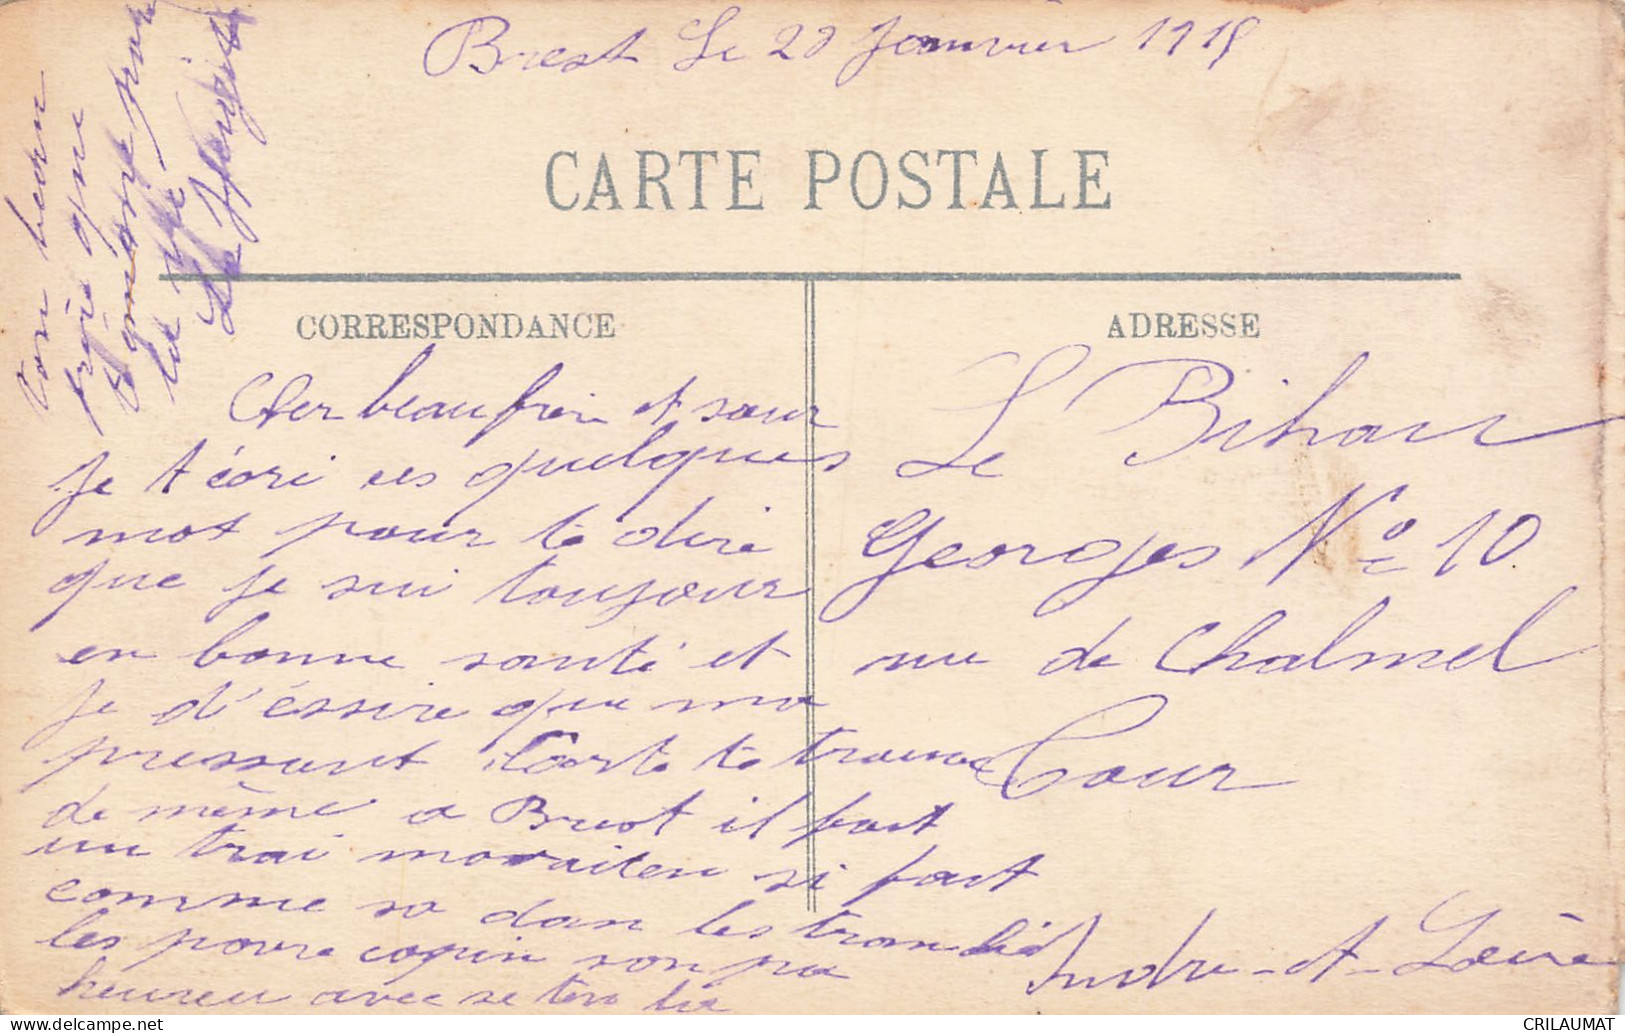 Brest Le 20 Janvier 1915
CARTE POSTALE
CORRESPONDANCE
ADRESSE
Cher beau frère et sœur
je t écri ces quelques
mot pour te dire
que je sui toujour
en bonne santé et
je d'éssire que ma
pressant Carte te trouve
de même a Brest il fait
un trai mauvaiten si fait
comme sa dan les tranché
les povre copin son pa
heureu avec se ten la
Ton beau
frère que
pour
la vie
Le Bihan
Georges No 10
rue de Chalmel
Tour
Indre-et-Loire
CRILAUMAT